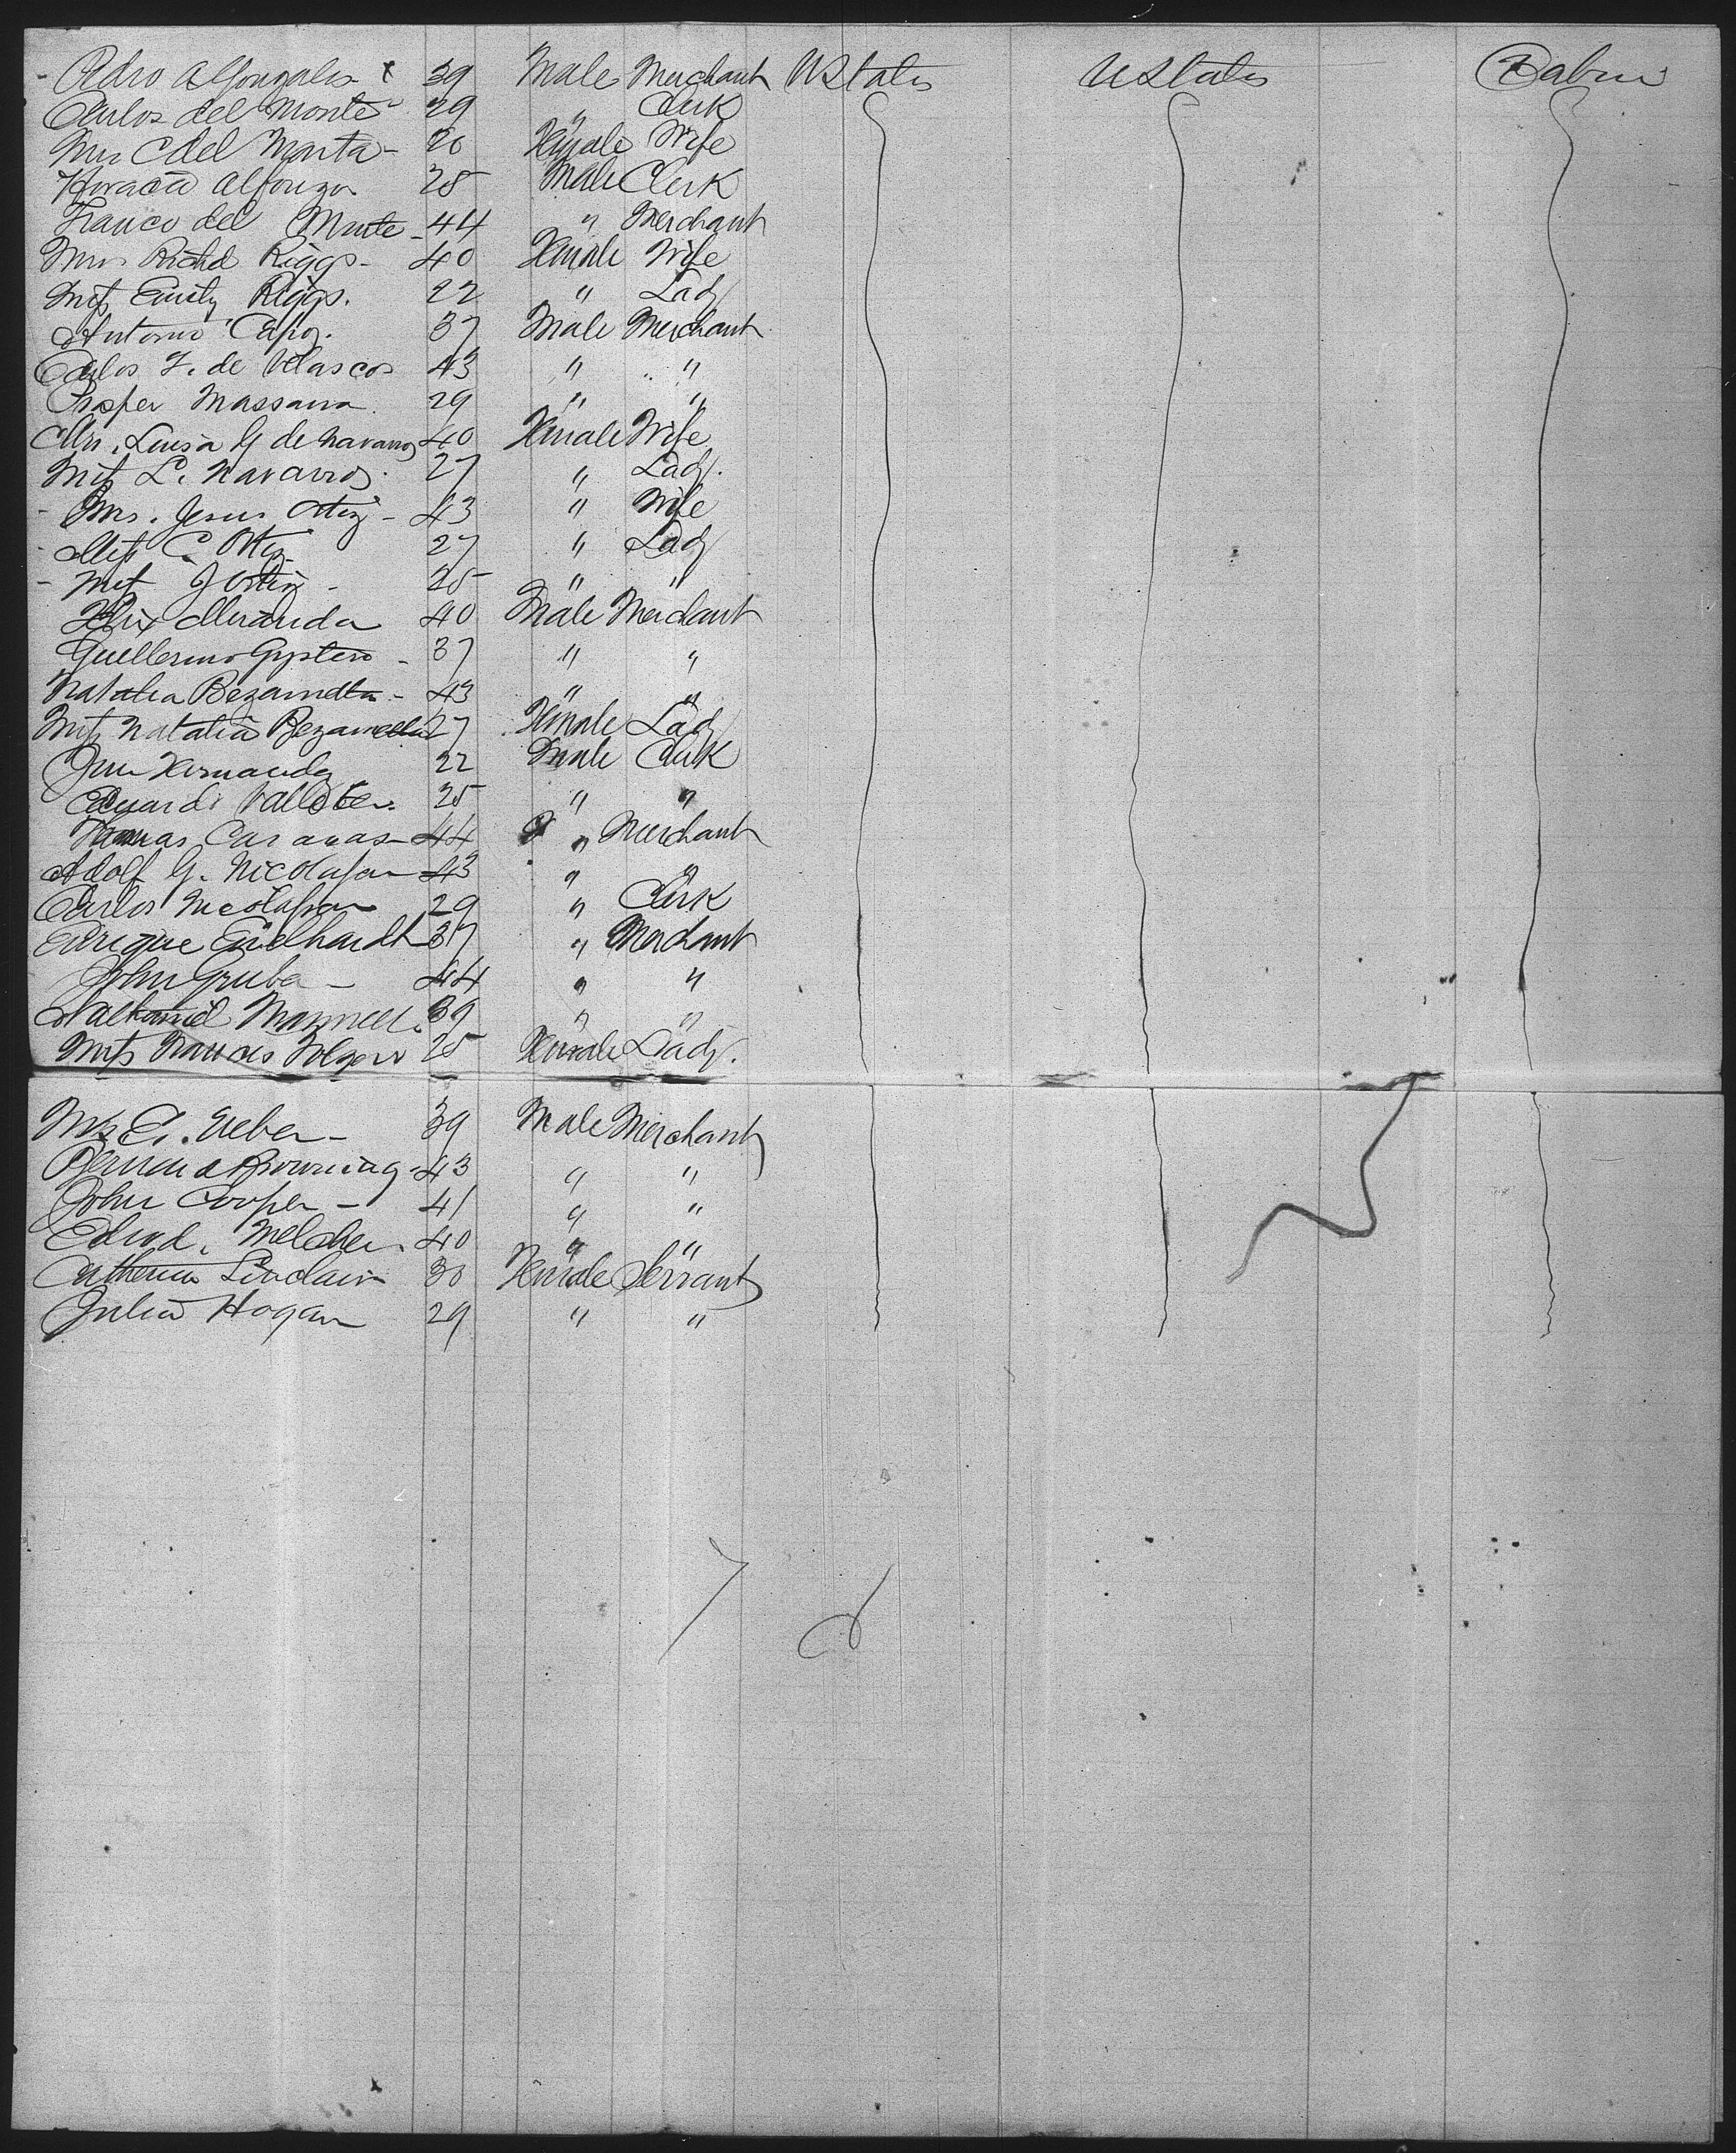 Pedro Alfonzales x 39 Male Merchant U States U States Cabin
Carlos del Monte 29 " Clerk
Mrs C del Monta - 26 Female Wife
Horacio Alfonzo 28 Male Clerk
Franco del Monte - 44 " Merchant
Mrs Richd Riggs - 40 Female Wife
Miss Emily Riggs. 22 " Lady
Antonio 37 Male Merchant
Carlos F. de Velasco 43 " "
Prosper Massana. 29 " "
Mrs. Luisa G de Navarro 40 Female Wife
Miss L. Navarro. 27 " Lady.
- Mrs. Jesus Ortiz - 43 " Wife
- Miss C. Ortiz 27 " Lady
- Miss J Ortiz - 25 " "
Felix Miranda 40 Male Merchant
Guellermo - 37 " "
Natalia - 43 " "
Miss Natalia 27 Female Lady
Hernandez 22 Male Clerk
25 " "
44 " Merchant
Adolf G. 43 " "
Carlos 29 " Clerk
Enrique Engelhardt 37 " Merchant
John Gruba - 44 " "
Nathaniel 39 " "
Miss Frances 25 Female Lady.
39 Male Merchant
Browning - 43 " "
John Cooper - 41 " "
Edwd. Melcher. 40 " "
Catherine Sinclair 30 Female Servant
Julia Hogan 29 " "